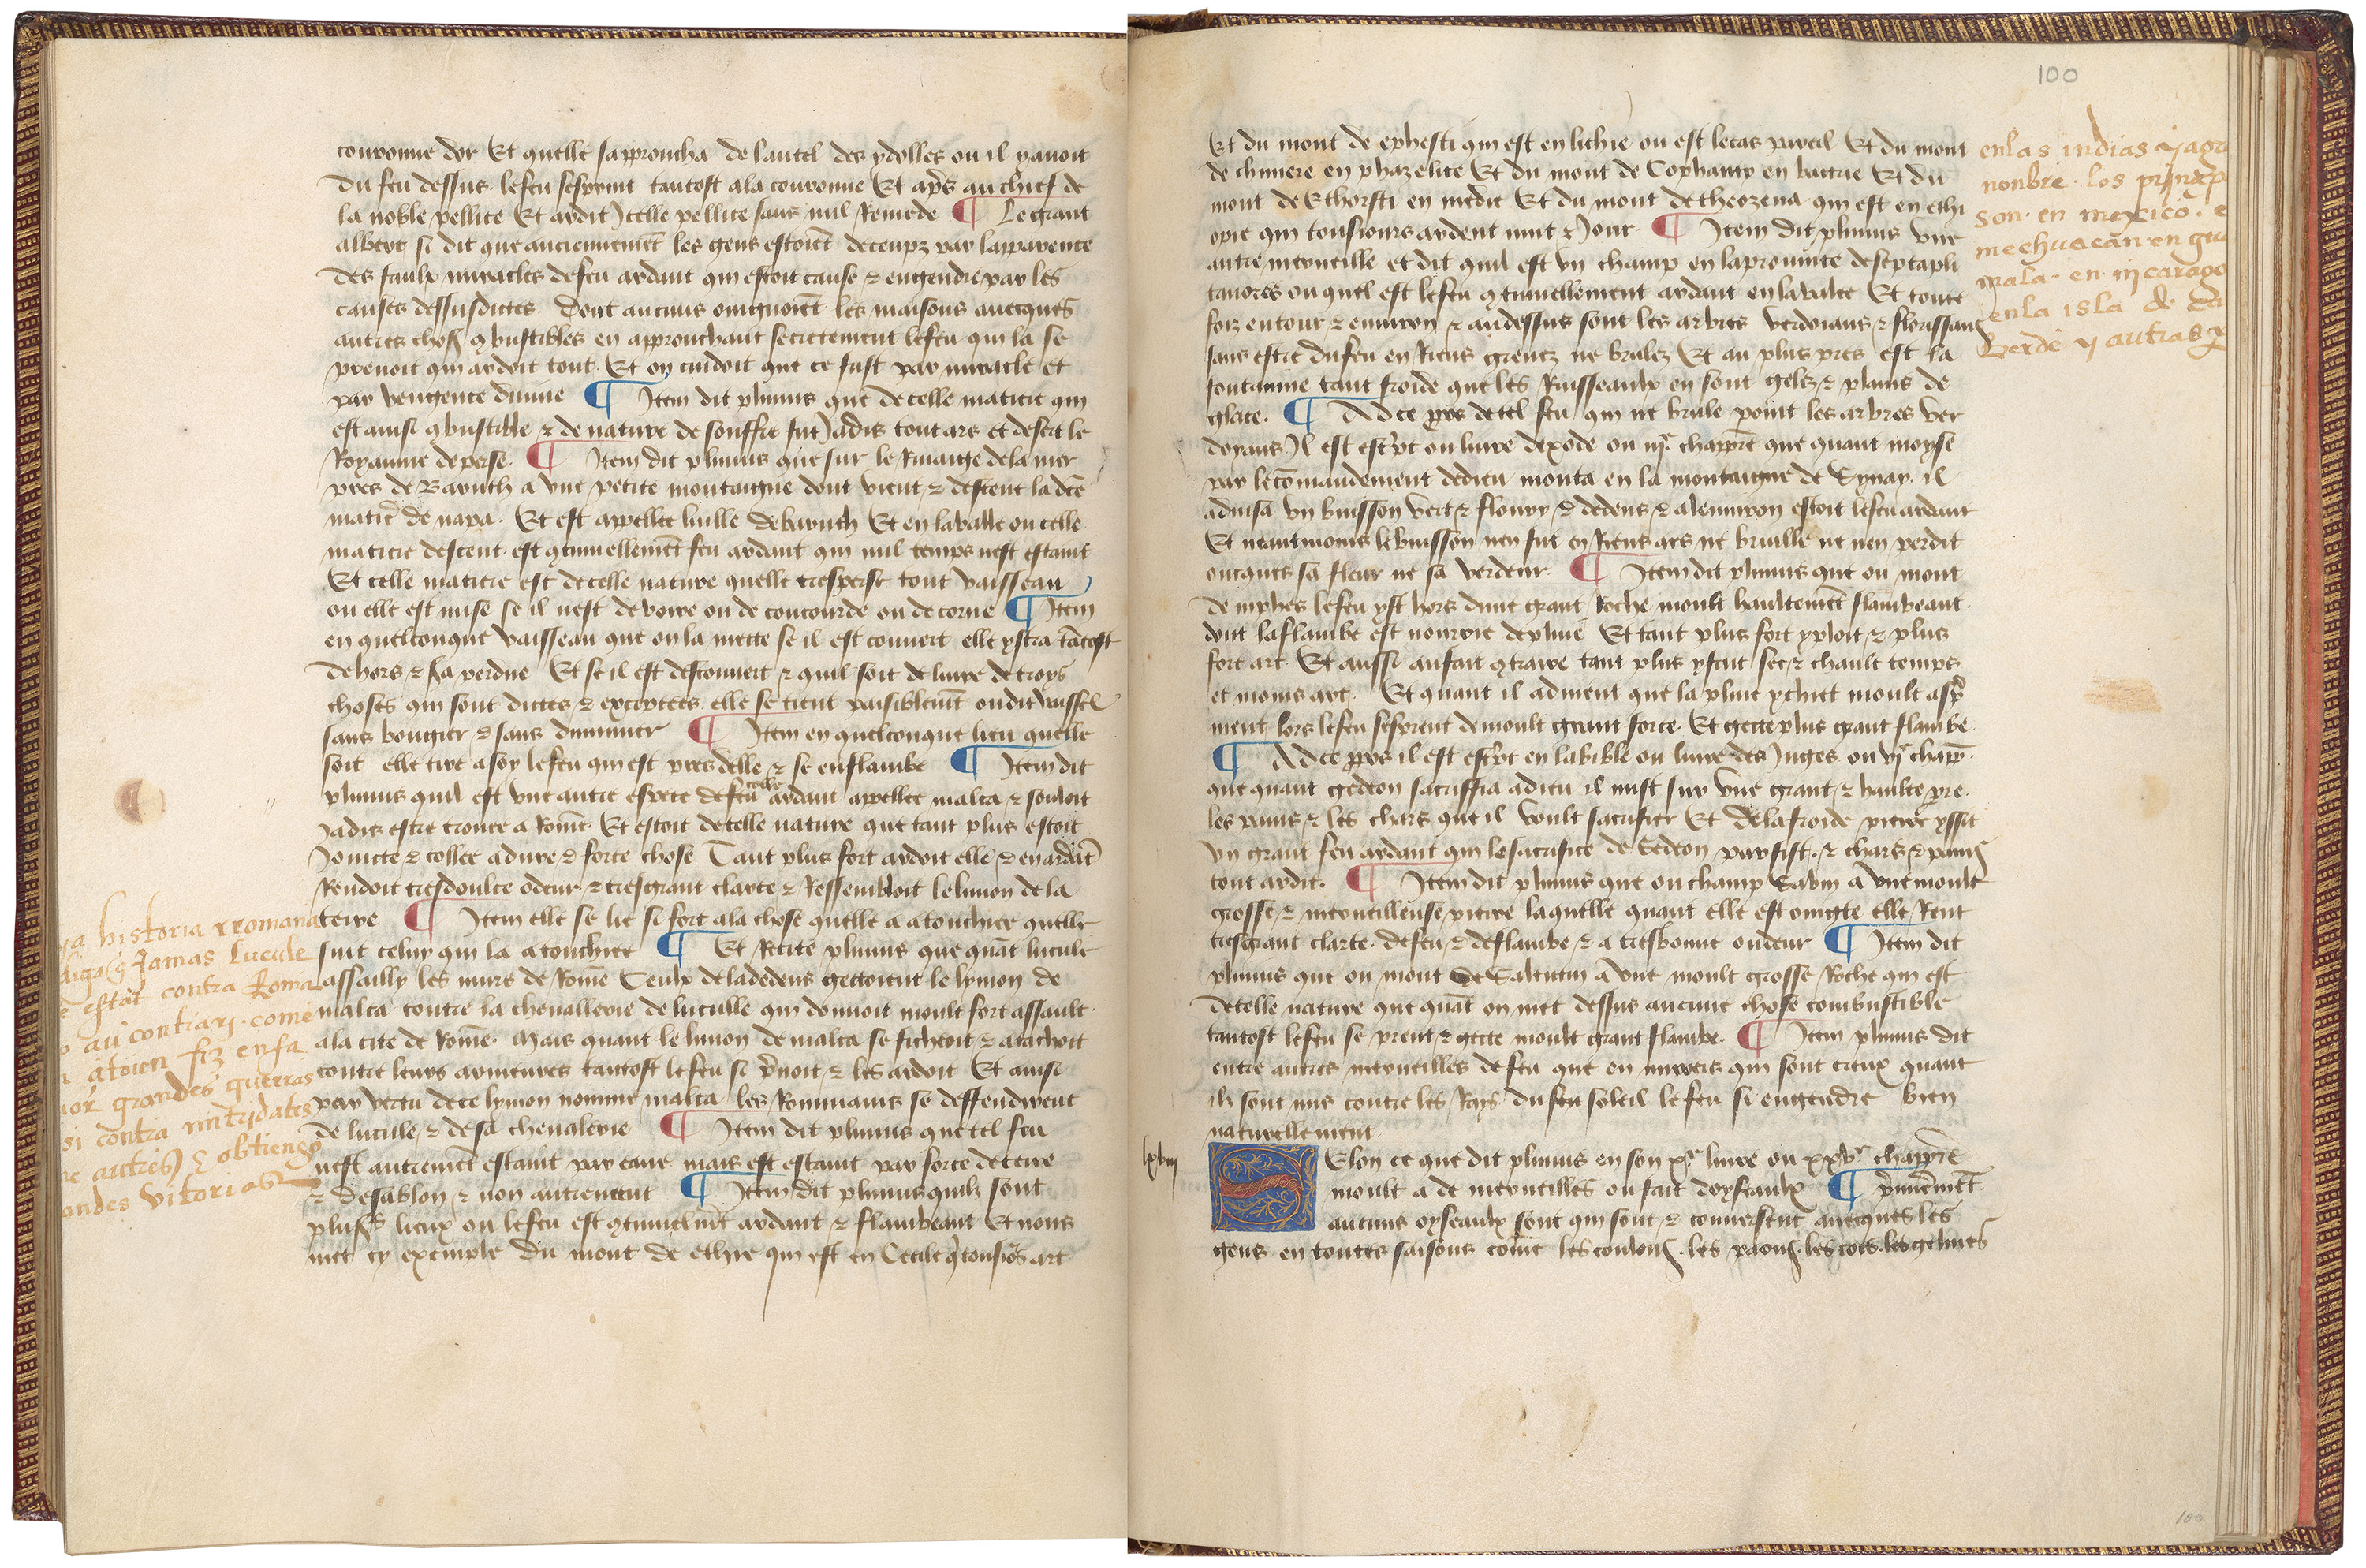 couronne dor Et quelle saproucha de lautel des ydolles ou il y auoit
du feu dessus. le feu sesprint tantost a la couronne Et apres au chief de
la noble pellice Et ardit Jcelle pellice sans nul Remede ¶ Le grant
albert si dit que anciennemēt les gens estoiēt deceupz par lapparence
des faulx miracles de feu ardant qui estoit cause & engendre par les
causes dessusdictes Dont aucuns oingnoiēt les maisons auecques
autres choses 9bustibles en approuchant secretement le feu qui la se
prenoit qui ardoit tout. Et on cuidoit que ce fust par miracle et
par vengence diuine ¶ Item dit plinius que de celle matiere qui
est ainsi 9bustible & de nature de souffre fut Jadis tout ars et desert le
Royaume de perse. ¶ Item dit plinius que sur le Riuaige de la mer
pres de Baruth a vne petite montaigne dont vient & descent la dcē
matiē de napa. Et est appellee huille de baruth Et en la valee ou celle
matiere descent est 9tinuellemēt feu ardant qui nul temps nest estaint
Et celle matiere est de celle nature quelle tresperse tout vaisseau
ou elle est mise se il nest de voire ou de concourde ou de corne ¶ Item
en quelconque vaisseau que on la mette se il est couuert elle ystra tātost
dehors & sa perdue Et se il est descouuert & quil soit de luire de troys
choses qui sont dictes & exceptees. elle se tient paisiblemēt oudit vaissel
sans bougier & sans diminuer ¶ Item en quelconque lieu quelle
soit elle tire a soy le feu qui est pres delle & se enflambe ¶ Item dit
plinius quil est vne autre espece de feu ardant appellee malta & souloit
Jadis estre trouue a Rōme. Et estoit de telle nature que tant plus estoit
Joincte & collee a dure & forte chose Tant plus fort ardoit elle & en ardāt
Rendoit tresdoulce odeur & tresgrant clarte & Ressembloit le limon de la
terre ¶ Item elle se lie si fort a la chose quelle a atouchiee quelle
suit celuy qui la atouchiee ¶ Et Recite plinius que quāt lucule
assailly les murs de Rōme Ceulx de la dedens gettoient le lymon de
malta contre la cheuallerie de lucule qui donnoit moult fort assault.
a la cite de Rōme. Mais quant le limon de malta se fichoit & atachoit
contre leurs armeures tantost le feu si p̄noit & les ardoit Et ainsi
par vertu de ce lymon nomme malta les Rommains se deffendirent
de lucule & de sa cheualerie ¶ Item dit plinius que tel feu
nest autremēt estaint par eaue mais est estaint par force de terre
& de sablon & non autrement ¶ Item dit plinius quilz sont
plusrs lieux ou le feu est 9tinuelmēt ardant & flambeant Et nous
met cy exemple du mont de ethne qui est en Cecile q̄ tousiōrs art
historia rromana
Jamas Lucule
estāt contra Roma
au contrary. come
fiz en sa
grandes guerras
contra mitrydates
autres & obtiengo
andes vitorias
100
Et du mont de ephesti qui est en lichie ou est le cas pareil Et du mont
de chimere en phazelite Et du mont de Cophanto en batrie Et du
mont de Ethorsti en medie Et du mont de theozena qui est en ethi
opie qui tousiours ardent nuit & Jour. ¶ Item dit plinius vne
autre merueille et dit quil est vn champ en la prouince de septapli
tanores ou quel est le feu 9tinuellement ardant en la valee Et toute
foiz entour & enuiron & au dessus sont les arbres verdoians & florissans
sans estre du feu en Riens greuez ne brulez Et au plus pres est la
fontaine tant froide que les Ruisseaulx en sont gelez & plains de
glace. ¶ Ad ce pros de tel feu qui ne brule point les arbres ver
doyans Jl est escrpt ou liure dexode ou iije chappre que quant moyse
par le cōmandement de dieu monta en la montaigne de Synay. il
aduisa vn buisson vert & floury & dedens & alenuiron estoit le feu ardant
Et neantmoins le buisson nen fut en Riens ars ne brulle ne nen perdit
oncques sa fleur ne sa verdeur. ¶ Item dit plinius que ou mont
de niphes le feu yst hors dune grant Roche moult haultemēt flambeant.
dont la flambe est nourrie de pluie Et tant plus fort y ploit & plus
fort art. Et aussi au fait 9traire tant plus y fait sec & chault temps
et moins art. Et quant il aduient que la pluie y chiet moult aspre
ment lors le feu sesprent de moult grant force. Et gette plus grant flambe.
¶ Ad ce pros il est escrpt en la bible ou liure des Juges ou vje chapre.
que quant gedeon sacriffia a dieu il mist sur vne grant & haulte pre.
les pains & les chars que il voult sacrifier Et de la froide pierre yssit
vn grant feu ardant qui le sacrifice de Gedeon parfist. & chars & pains
tout ardit. ¶ Item dit plinius que ou champ Sabin a vne moult
grosse & merueilleuse pierre laquelle quant elle est oingte elle Rent
tresgrant clarte. de feu & de flambe & a tresbonne oudeur ¶ Item dit
plinius que ou mont de Salentin a vne moult grosse Roche qui est
de telle nature que quāt on met dessus aucune chose combustible
tantost le feu se prent & gette moult grant flambe. ¶ Item plinius dit
entre autres merueilles de feu que en miroers qui sont creux quant
ilz sont mis contre les Rays du feu soleil le feu si engendre bien
naturellement.
Selon ce que dit plinius en son xe liure ou xxve chappre
moult a de merueilles ou fait doyseaulx ¶ p̄mieremēt.
aucuns oyseaulx sont qui sont & conuersent auecques les
gens en toutes saisons cōme les coulons. les paons. les cocs. les gelines
en las indias y
nonbre. los
son. en mexico.
mechuacan en
mala. en nicarago
en la isla de
Berde y autras
100